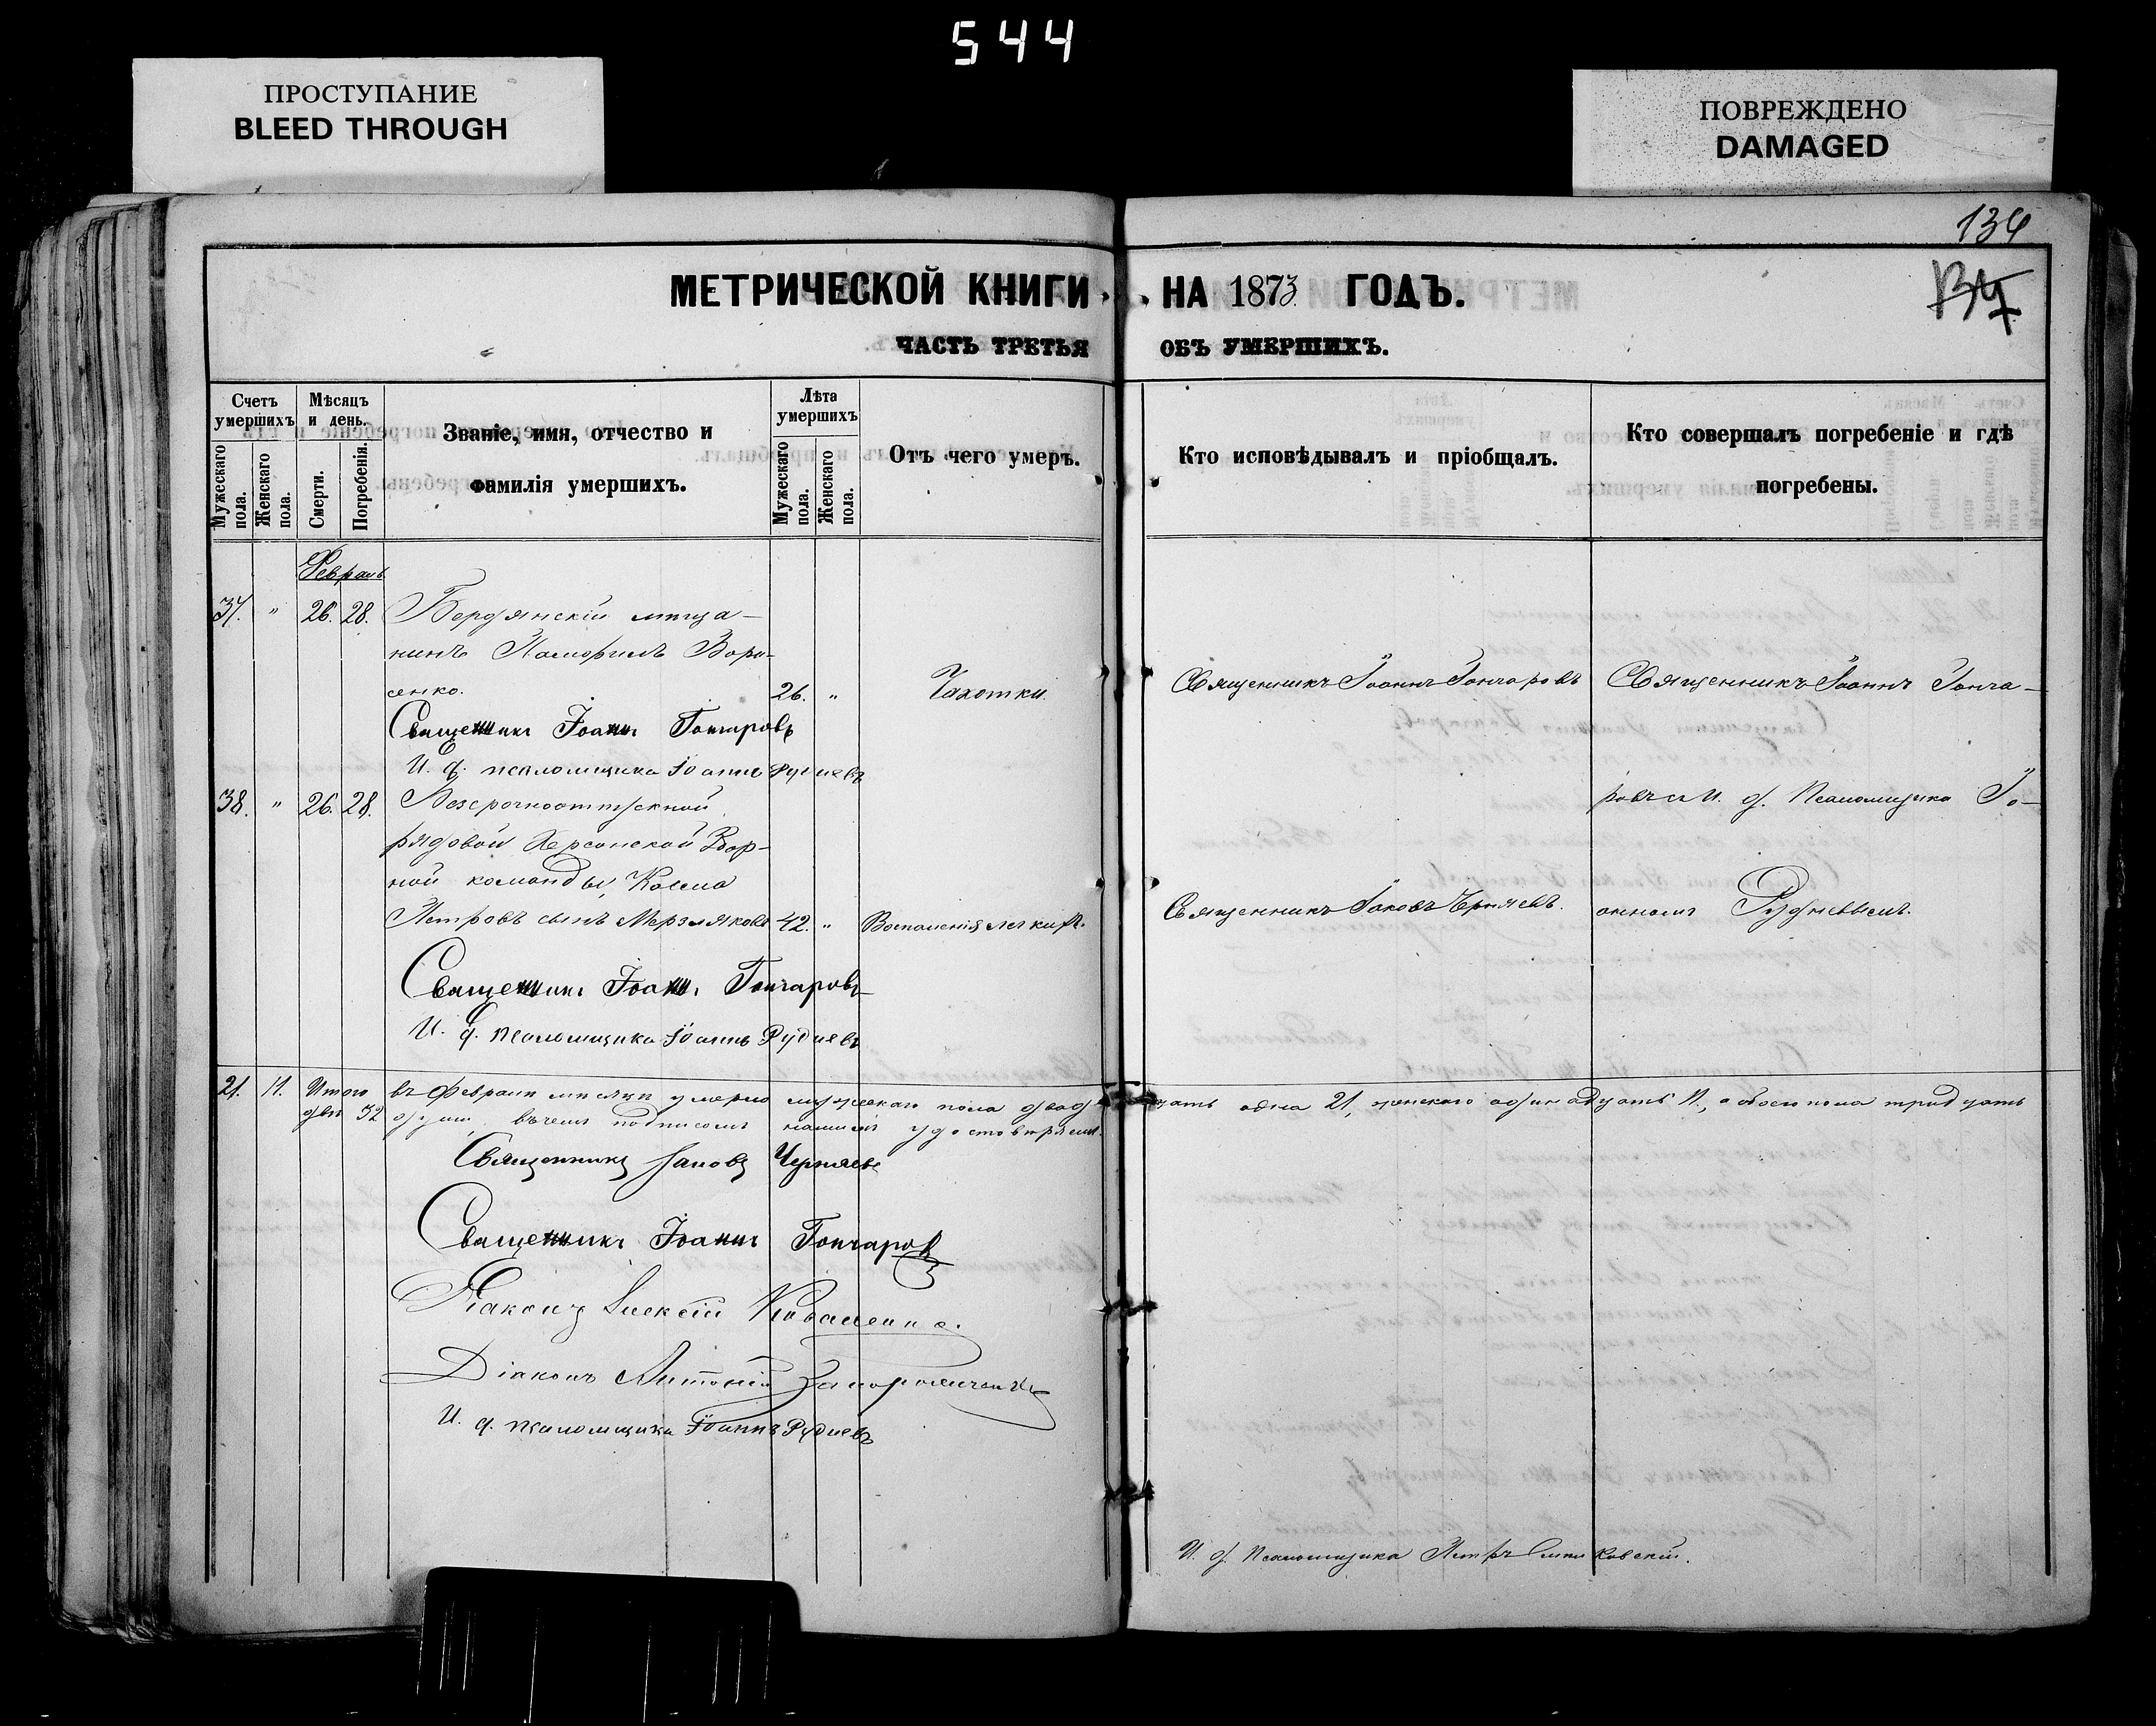 544
ПРОСТУПАНИЕ
BLEED THROUGH
ПОВРЕЖДЕНО
DAMAGED
136
134
МЕТРИЧЕСКОЙ КНИГИ НА 1873 ГОДЪ.
ЧАСТЬ ТРЕТЬЯ ОБЪ УМЕРШИХЪ.
Счетъ умершихъ
Мужескаго пола.
Женскаго пола.
Мѣсяцъ и день.
Смерти.
Погребенія.
Званіе, имя, отчество и
фамилія умершихъ.
Лѣта умершихъ
Мужескаго пола.
Женскаго пола.
Отъ чего умеръ.
Кто исповѣдывалъ и пріобщалъ.
Кто совершалъ погребеніе и гдѣ
погребены.
Февраль
37. " 26. 28. Бердянскій мѣща-
нинъ Памфилъ Бори-
сенко. 26. " Чахотки. Священникъ Іоаннъ Гончаровъ Священникъ Іоаннъ Гонча-
Священникъ Іоаннъ Гончаровъ
И. д. псаломщика Іоаннъ Рудневъ
38. " 26. 28. Безсрочноотпускной ровъ съ И. д. Псаломщика Іо-
рядовой Херсонской
ной команды, Косма
Петровъ сынъ Мерзляковъ 42. " Воспаленія легкихъ. Священникъ Іаковъ Черняевъ. анномъ Рудневымъ.
Священникъ Іоаннъ Гончаровъ
И. д. псаломщика Іоаннъ Рудневъ
21. 11. Итого въ Февралѣ мѣсяцѣ умерло мужескаго пола двадцать одна 21, женскаго одинадцать 11, а обоего пола тридцать
двѣ 32 души, въ чемъ подписомъ нашимъ удостовѣряемъ.
Священникъ Іаковъ Черняевъ
Священникъ Іоаннъ Гончаровъ
Діаконъ Алексій Коваленко.
Діаконъ Антоній
И. д. псаломщика Іоаннъ Рудневъ
И. д. Псаломщика Петръ